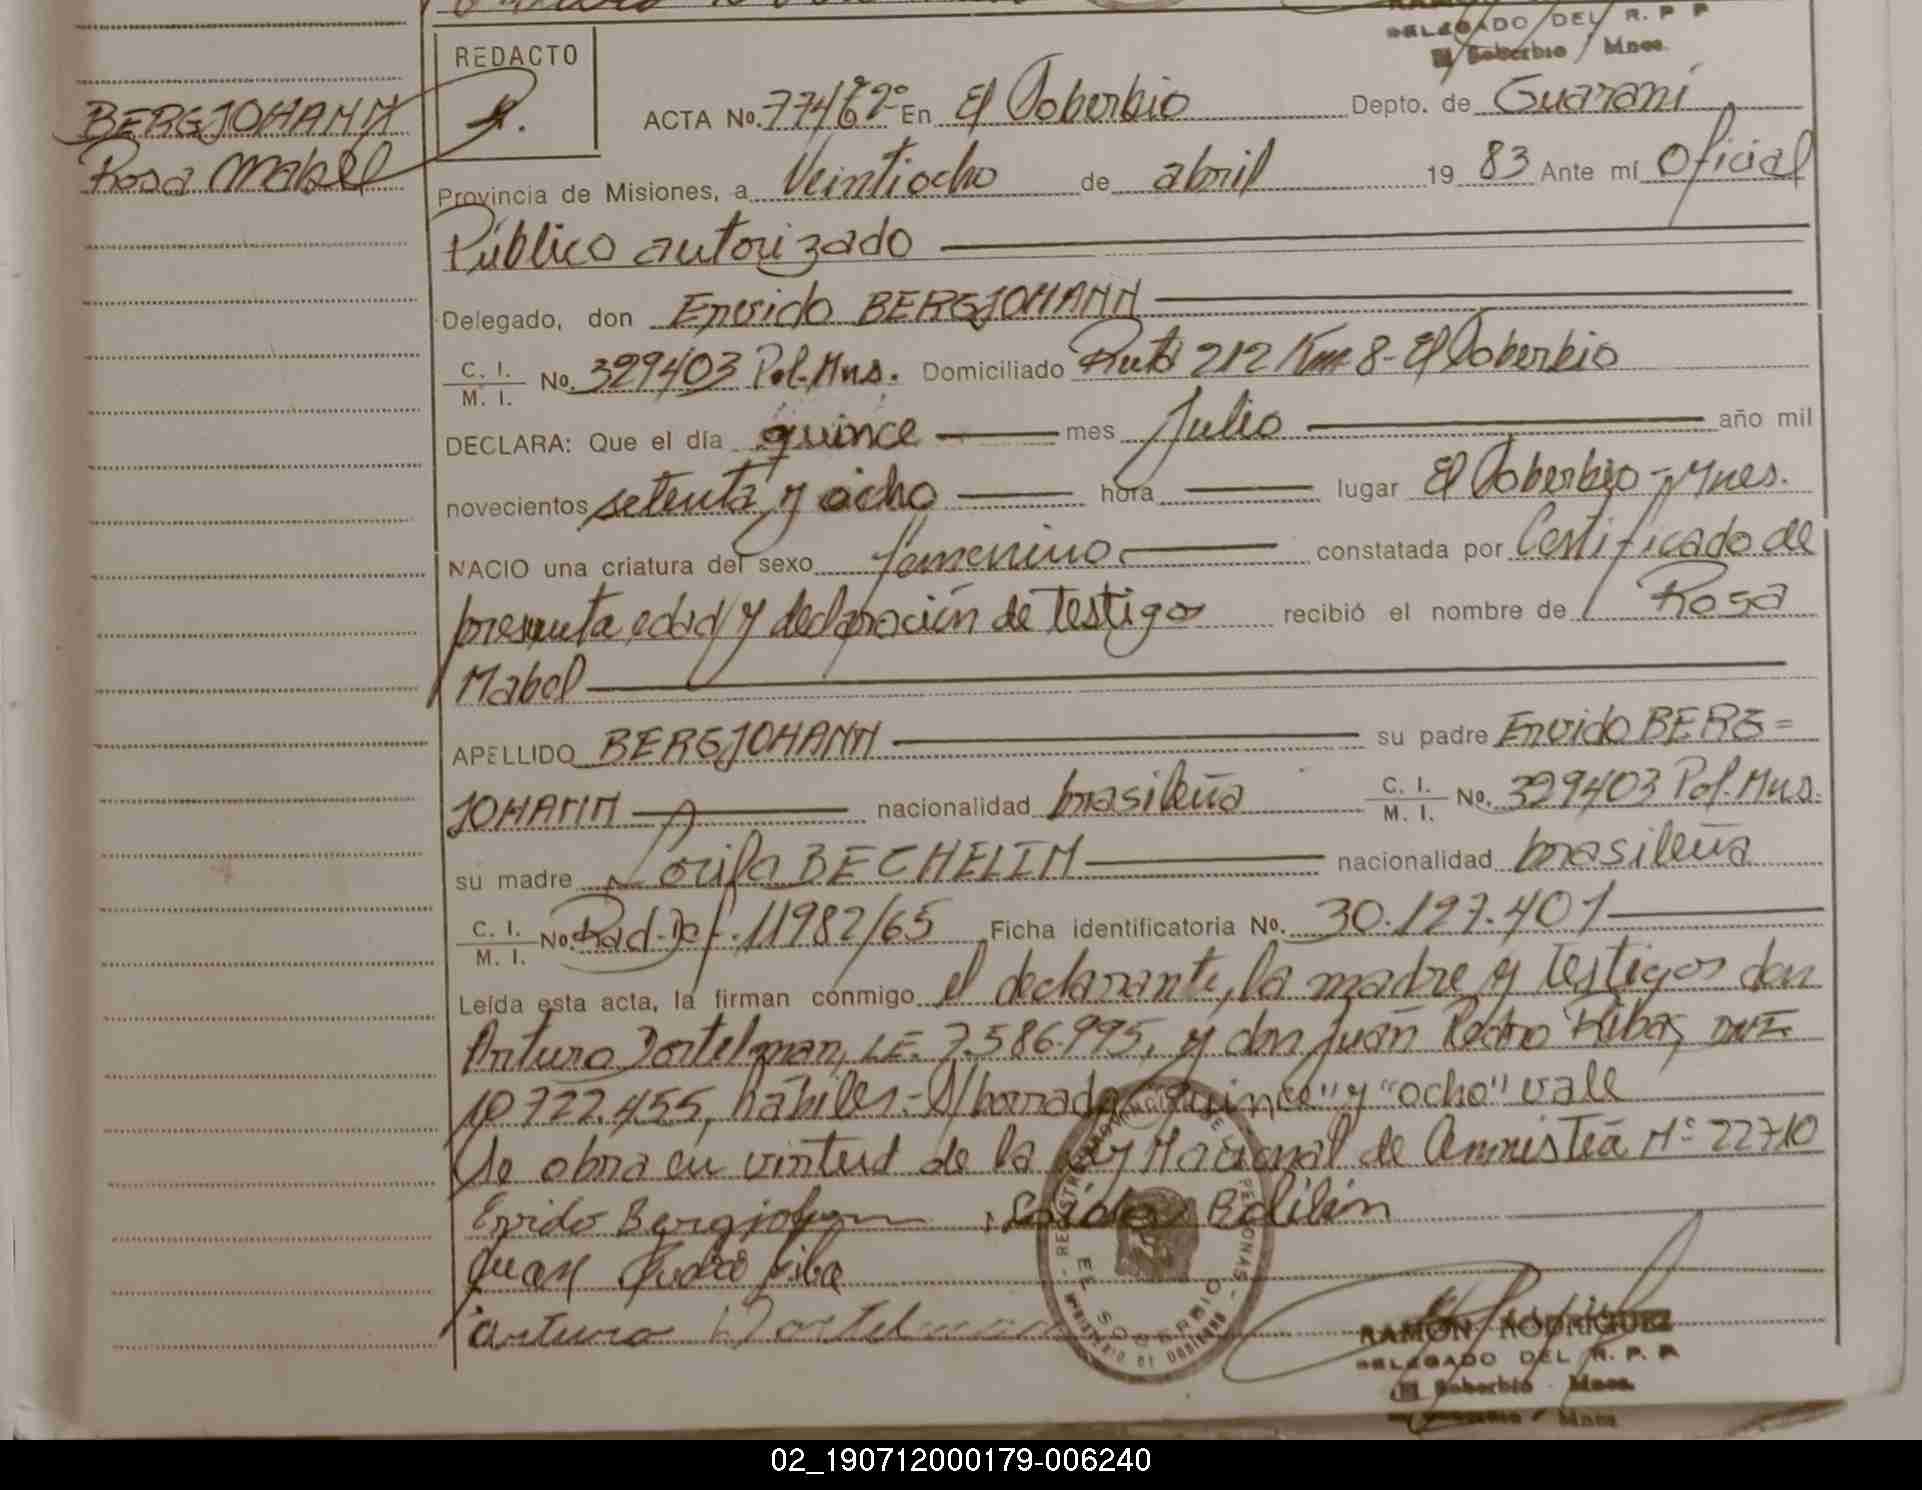 DELEGADO DEL R. P. P
El Soberbio / Mnes.
REDACTO
BERGJOHANN
Rosa Mabel
ACTA No. 774 Tº 2º En El Soberbio Depto. de Guaraní
Provincia de Misiones, a Veintiocho de abril 19 83 Ante mí Oficial
Público autorizado
Delegado, don Envido BERGJOHANN
C. I. / M. I. No. 329403 Pol. Mns. Domiciliado Ruta 212 Km 8 - El Soberbio
DECLARA: Que el día quince mes Julio año mil
novecientos setenta y ocho hora lugar El Soberbio - Mnes.
NACIO una criatura del sexo femenino constatada por Certificado de
presunta edad y declaración de testigos recibió el nombre de Rosa
Mabel
APELLIDO BERGJOHANN su padre Envido BERG=
JOHANN nacionalidad brasileña C. I. / M. I. No. 329403 Pol. Mns.
su madre Lorifa BECHELIN nacionalidad brasileña
C. I. / M. I. No. Rad. Def. 11982/65 Ficha identificatoria No. 30.127.401
Leída esta acta, la firman conmigo el declarante, la madre y testigos don
Arturo Dortelman, L.E. 7.586.995, y don Juan Pedro Ribas, DNI.
10.722.455, hábiles.- S/borrado "quince" y "ocho" vale
Se obra en virtud de la Ley Nacional de Amnistía Nº 22710
Juan Pedro Riba
Arturo Dortelman
EL SOBERBIO
RAMÓN RODRIGUEZ
DELEGADO DEL R. P. P
El Soberbio - Mnes.
02_190712000179-006240